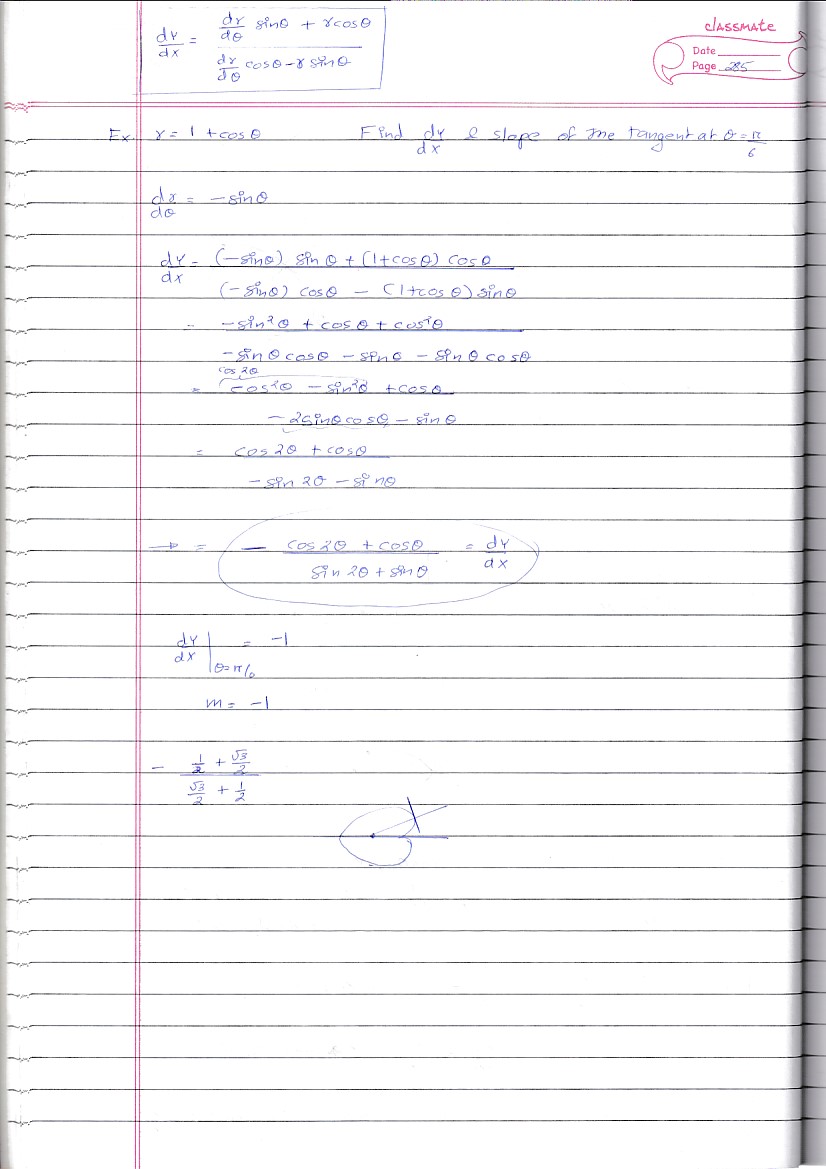 dy/dx = (dr/dθ sinθ + rcosθ) / (dr/dθ cosθ - r sinθ)
classmate
Date
Page 285
Ex. r = 1 + cosθ Find dy/dx & slope of the tangent at θ = π/6
dr/dθ = -sinθ
dy/dx = ((-sinθ) sinθ + (1+cosθ) cosθ) / ((-sinθ) cosθ - (1+cosθ) sinθ)
= (-sin²θ + cosθ + cos²θ) / (-sinθ cosθ - sinθ - sinθ cosθ)
cos2θ
= (cos²θ - sin²θ + cosθ) / (-2sinθcosθ - sinθ)
= (cos2θ + cosθ) / (-sin2θ - sinθ)
→ = - (cos2θ + cosθ) / (sin2θ + sinθ) = dy/dx
dy/dx |θ=π/6 = -1
m = -1
- (1/2 + √3/2) / (√3/2 + 1/2)